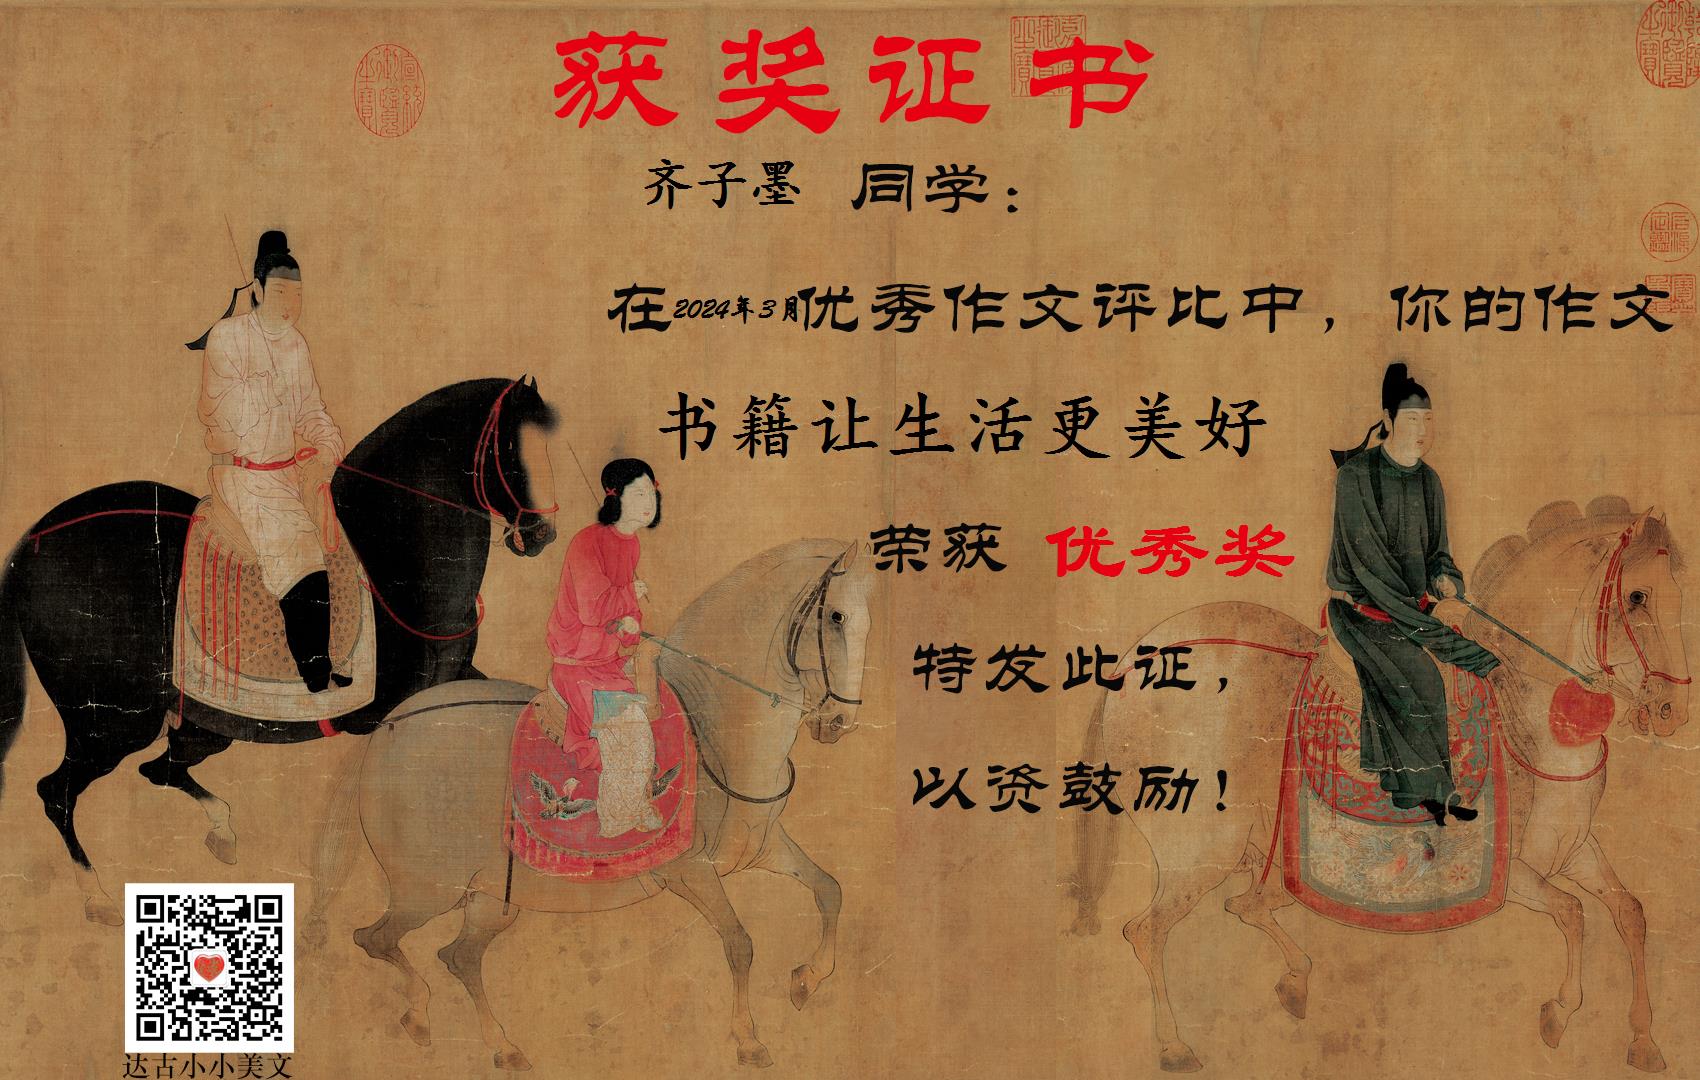 获奖证书
齐子墨 同学：
在2024年3月优秀作文评比中，你的作文
书籍让生活更美好
荣获 优秀奖
特发此证，
以资鼓励！
达古小小美文